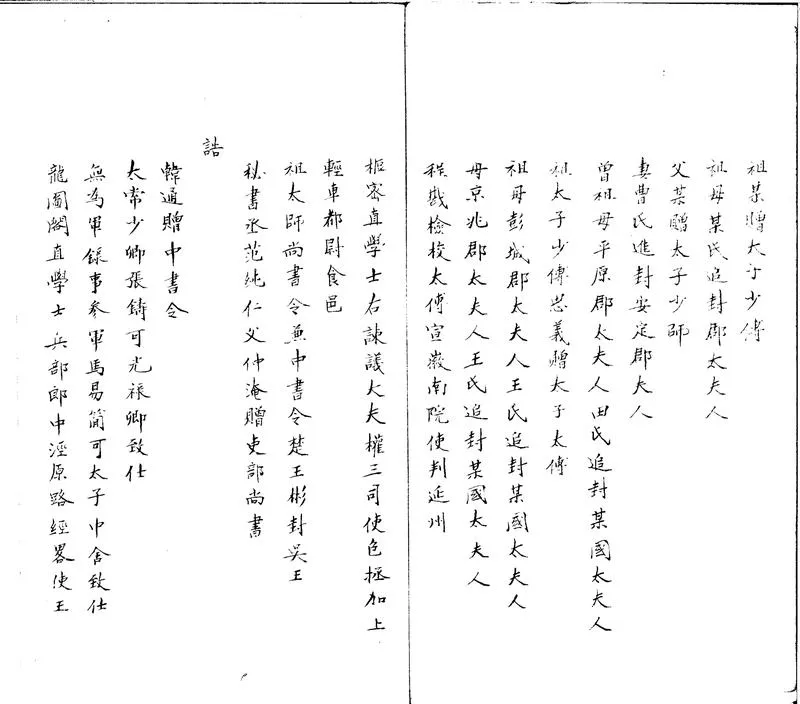 祖某贈太子少傅
祖母某氏追封郡太夫人
父某贈太子少師
妻曹氏進封安定郡夫人
曾祖母平原郡太夫人田氏追封某國太夫人
祖太子少傅忠義贈太子太傅
祖母彭城郡太夫人王氏追封某國太夫人
母京兆郡太夫人王氏追封某國太夫人
程戡檢校太傅宣徽南院使判延州
樞密直學士右諫議大夫權三司使包拯加上
輕車都尉食邑
祖太師尚書令兼中書令楚王彬封吳王
秘書丞范純仁父仲淹贈吏部尚書
誥
韓通贈中書令
太常少卿張鑄可光祿卿致仕
無為軍錄事參軍馬易簡可太子中舍致仕
龍圖閣直學士兵部郎中涇原路經畧使王